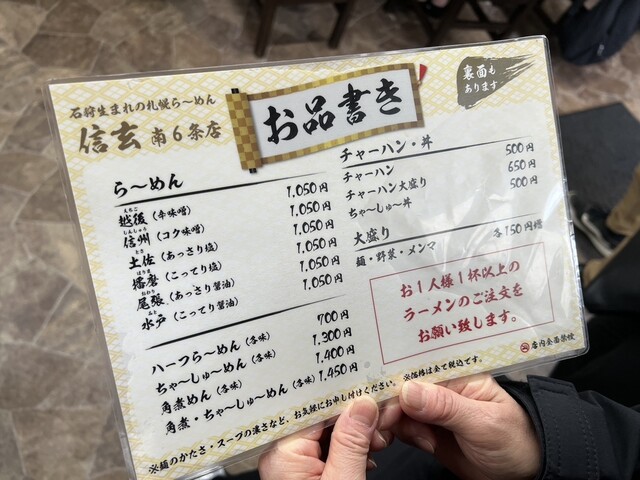 石狩生まれの札幌ら〜めん
信玄 南6条店
お品書き
裏面も
あります
ら〜めん
越後(辛味噌) 1,050円
えちご
信州(コク味噌) 1,050円
しんしゅう
土佐(あっさり塩) 1,050円
とさ
播磨(こってり塩) 1,050円
はりま
尾張(あっさり醤油) 1,050円
おわり
水戸(こってり醤油) 1,050円
みと
ハーフら〜めん(各味) 700円
ちゃ〜しゅ〜めん(各味) 1,300円
角煮めん(各味) 1,400円
角煮・ちゃ〜しゅ〜めん(各味) 1,450円
チャーハン・丼
チャーハン 500円
チャーハン大盛り 650円
ちゃ〜しゅ〜丼 500円
大盛り
麺・野菜・メンマ 各150円増
お1人様1杯以上の
ラーメンのご注文を
お願い致します。
店内全面禁煙
※麺のかたさ・スープの濃さなど、お気軽にお申し付けください。※価格は全て税込です。